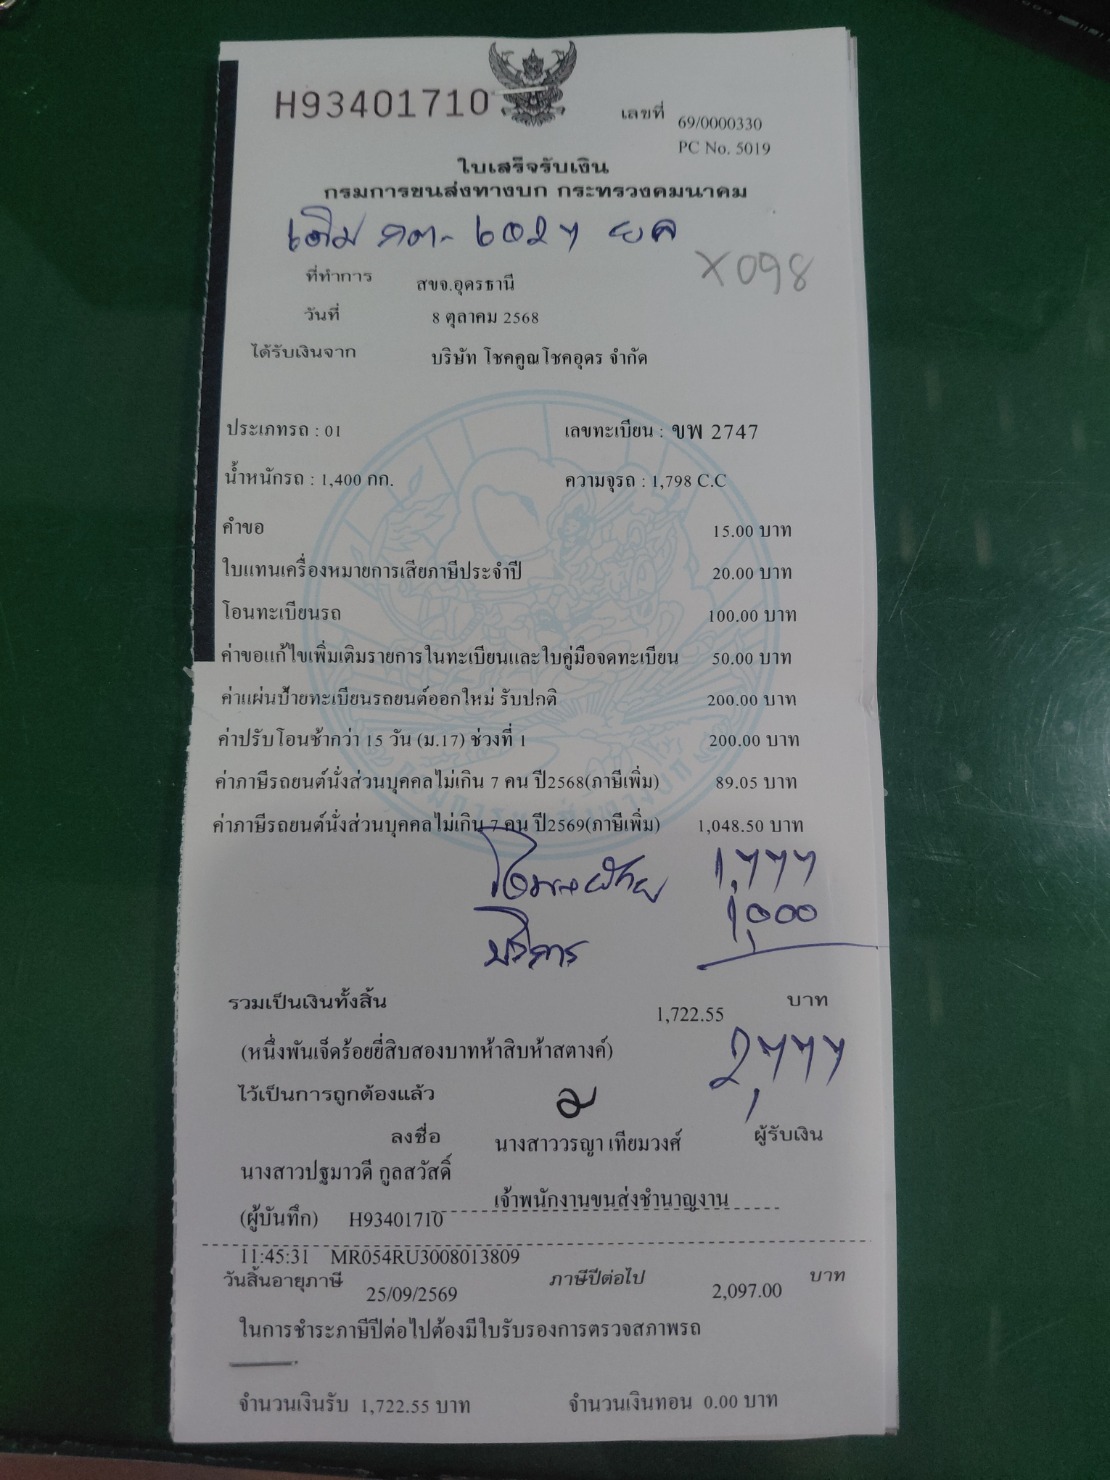 H93401710
เลขที่ 69/0000330
PC No. 5019
ใบเสร็จรับเงิน
กรมการขนส่งทางบก กระทรวงคมนาคม
เดิม กต-6027 ยค
X098
ที่ทำการ สขจ.อุดรธานี
วันที่ 8 ตุลาคม 2568
ได้รับเงินจาก บริษัท โชคคูณโชคอุดร จำกัด
ประเภทรถ : 01 เลขทะเบียน : ขพ 2747
น้ำหนักรถ : 1,400 กก. ความจุรถ : 1,798 C.C
คำขอ 15.00 บาท
ใบแทนเครื่องหมายการเสียภาษีประจำปี 20.00 บาท
โอนทะเบียนรถ 100.00 บาท
ค่าขอแก้ไขเพิ่มเติมรายการในทะเบียนและใบคู่มือจดทะเบียน 50.00 บาท
ค่าแผ่นป้ายทะเบียนรถยนต์ออกใหม่ รับปกติ 200.00 บาท
ค่าปรับโอนช้ากว่า 15 วัน (ม.17) ช่วงที่ 1 200.00 บาท
ค่าภาษีรถยนต์นั่งส่วนบุคคลไม่เกิน 7 คน ปี2568(ภาษีเพิ่ม) 89.05 บาท
ค่าภาษีรถยนต์นั่งส่วนบุคคลไม่เกิน 7 คน ปี2569(ภาษีเพิ่ม) 1,048.50 บาท
1,777
บริการ 1,000
รวมเป็นเงินทั้งสิ้น 1,722.55 บาท
(หนึ่งพันเจ็ดร้อยยี่สิบสองบาทห้าสิบห้าสตางค์) 2,777
ไว้เป็นการถูกต้องแล้ว
ลงชื่อ นางสาววรญา เทียมวงศ์ ผู้รับเงิน
นางสาวปฐมาวดี กูลสวัสดิ์
เจ้าพนักงานขนส่งชำนาญงาน
(ผู้บันทึก) H93401710
11:45:31 MR054RU3008013809
วันสิ้นอายุภาษี 25/09/2569 ภาษีปีต่อไป 2,097.00 บาท
ในการชำระภาษีปีต่อไปต้องมีใบรับรองการตรวจสภาพรถ
จำนวนเงินรับ 1,722.55 บาท จำนวนเงินทอน 0.00 บาท